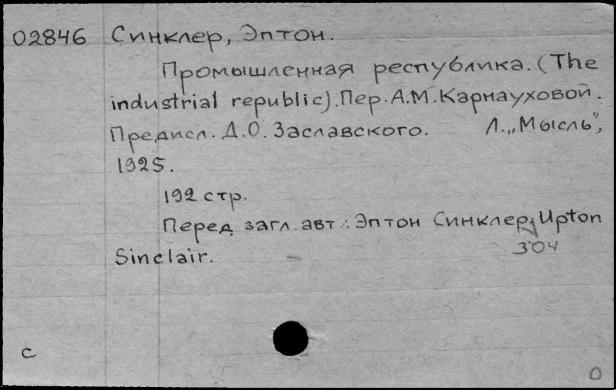 02846 Синклер, Эптон.
Промышленная республика. (The
industrial republic). Пер. А.М. Карнауховой.
Предисл. Д.О. Заславского. Л., „Мысль",
1925.
192 стр.
Перед загл. авт.: Эптон Синклер, Upton
Sinclair.
304
с
0